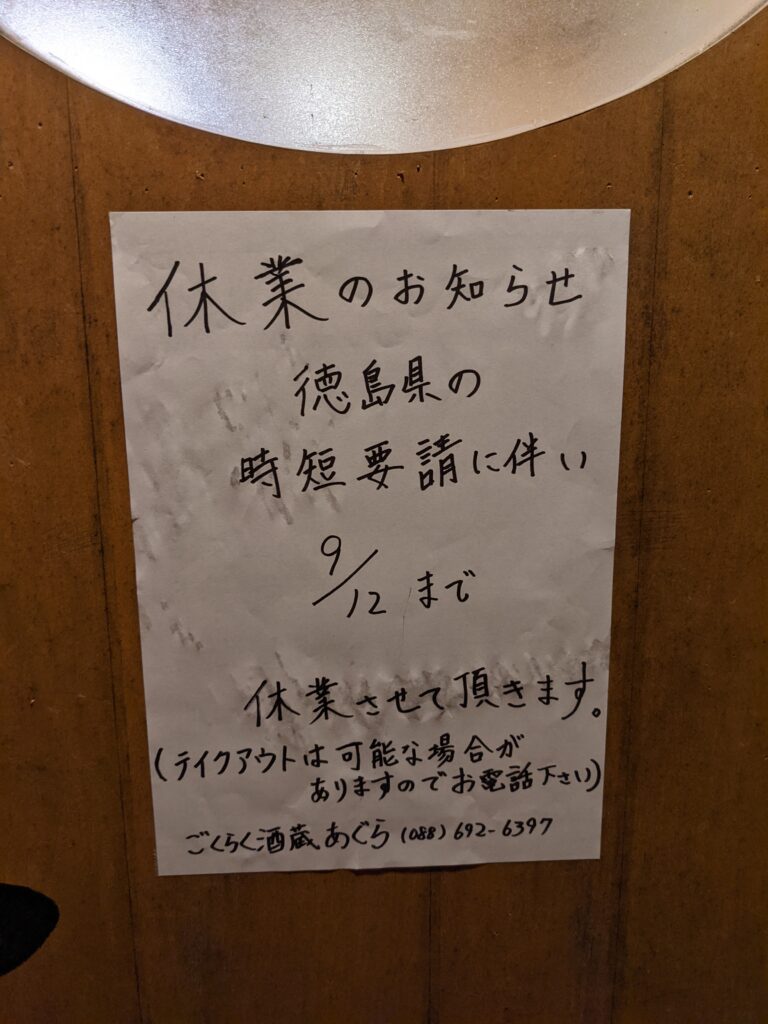 休業のお知らせ
徳島県の
時短要請に伴い
9/12 まで
休業させて頂きます。
(テイクアウトは可能な場合が
ありますのでお電話下さい)
ごくらく酒蔵あぐら (088) 692-6397